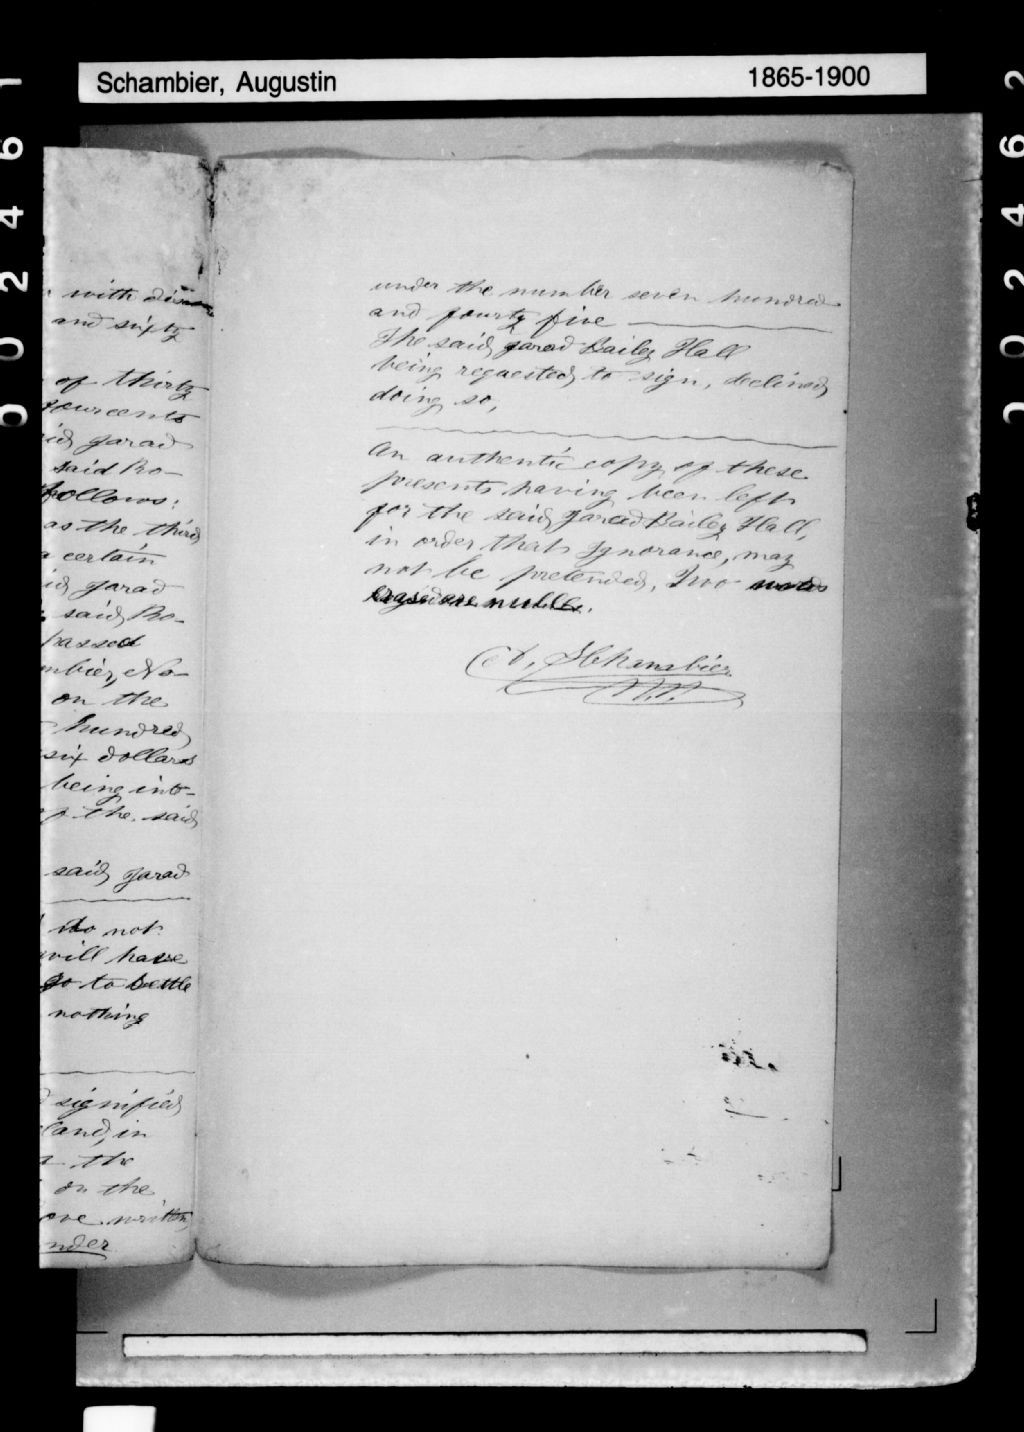 Schambier, Augustin 1865-1900
002461
002462
with
and sixty
of thirty
fourcents
Jarad
said Ro-
follows:
as the third
a certain
Jarad
said Ro-
passed
mbier, No-
on the
hundred
six dollars
being inte-
of the said
said Jarad
do not
will have
go to settle
nothing
signified
land, in
the
on the
ove written,
nder
under the number seven hundred
and fourty five
The said Jarad Bailey Hall
being requested to sign, declined
doing so,
An authentic copy of these
presents having been left
for the said Jarad Bailey Hall,
in order that Ignorance, may
not be pretended, Two words
erased are nulls.
A. Schambier
N.P.